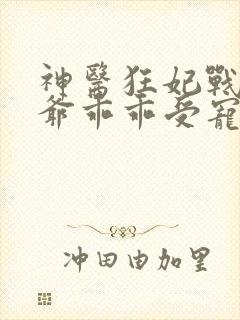 神醫狂妃戰
爺乖乖受寵
冲田由加里